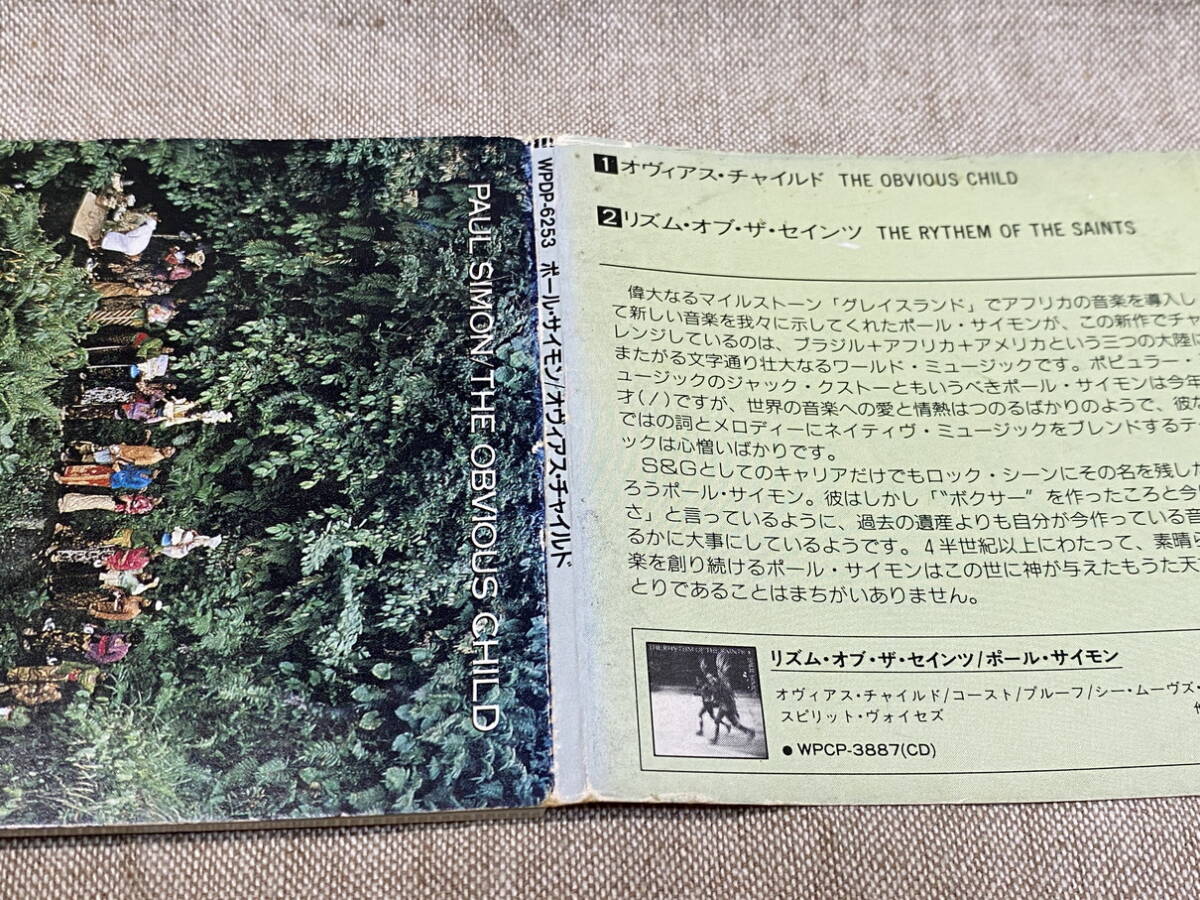 PAUL SIMON·THE OBVIOUS CHILD
WPDP-6253 ポール・サイモン/オヴィアス・チャイルド
1 オヴィアス・チャイルド THE OBVIOUS CHILD
2 リズム・オブ・ザ・セインツ THE RYTHEM OF THE SAINTS
偉大なるマイルストーン「グレイスランド」でアフリカの音楽を導入し
て新しい音楽を我々に示してくれたポール・サイモンが、この新作でチャ
レンジしているのは、ブラジル+アフリカ+アメリカという三つの大陸に
またがる文字通り壮大なるワールド・ミュージックです。ポピュラー・
ュージックのジャック・クストーともいうべきポール・サイモンは今年
才(!)ですが、世界の音楽への愛と情熱はつのるばかりのようで、彼な
ではの詞とメロディーにネイティヴ・ミュージックをブレンドするテ
ックは心憎いばかりです。
S&Gとしてのキャリアだけでもロック・シーンにその名を残した
ろうポール・サイモン。彼はしかし「“ボクサー”を作ったころと今
さ」と言っているように、過去の遺産よりも自分が今作っている音
るかに大事にしているようです。4半世紀以上にわたって、素晴ら
楽を創り続けるポール・サイモンはこの世に神が与えたもうた天
とりであることはまちがいありません。
THE RHYTHM OF THE SAINTS
リズム・オブ・ザ・セインツ/ポール・サイモン
オヴィアス・チャイルド/コースト/プルーフ/シー・ムーヴズ・
スピリット・ヴォイセズ
● WPCP-3887(CD)